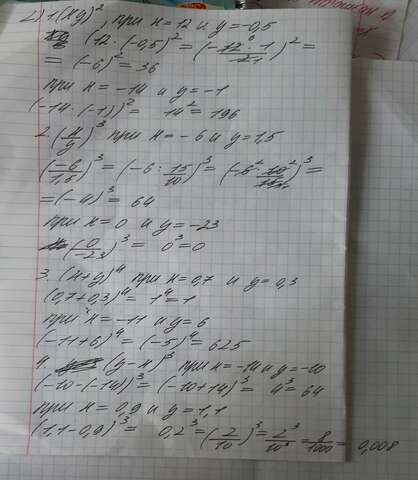 2) 1(xy)² при x = 12 и y = -0,5
(12 · (-0,5)² = (-12⁶ · 1/2₁)² =
= (-6)² = 36
при x = -14 и y = -1
(-14 · (-1))² = 14² = 196
2. (x/y)³ при x = -6 и y = 1,5
(-6/1,5)³ = (-6 : 15/10)³ = (-6² · 10²/15)³ =
= (-4)³ = 64
при x = 0 и y = -23
(0/-23)³ = 0³ = 0
3. (x+y)⁴ при x = 0,7 и y = 0,3
(0,7+0,3)⁴ = 1⁴ = 1
при x = -11 и y = 6
(-11+6)⁴ = (-5)⁴ = 625
4. (y-x)³ при x = -14 и y = -10
(-10-(-14))³ = (-10+14)³ = 4³ = 64
при x = 0,9 и y = 1,1
(1,1-0,9)³ = 0,2³ = (2/10)³ = 2³/10³ = 8/1000 = 0,008